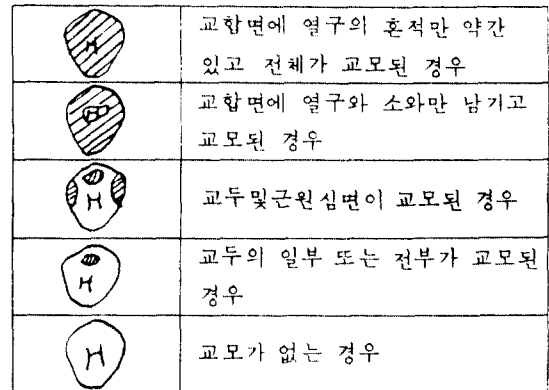 교합면에 열구의 흔적만 약간
있고 전체가 교모된 경우
교합면에 열구와 소와만 남기고
교모된 경우
교두및근원심면이 교모된 경우
교두의 일부 또는 전부가 교모된
경우
교모가 없는 경우